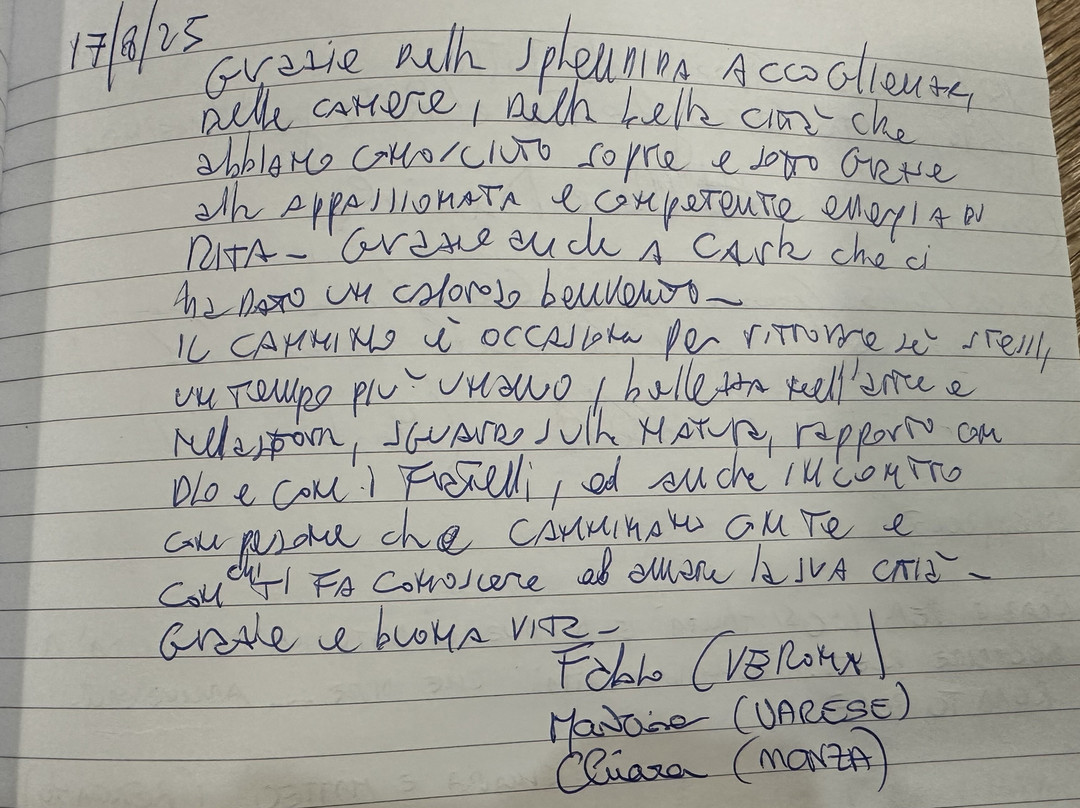 17/8/25
Grazie della splendida accoglienza,
delle camere, della bella città che
abbiamo conosciuto sopra e sotto grazie
alla appassionata e competente energia di
Rita - Grazie anche a Carla che ci
ha dato un caloroso benvenuto -
Il cammino è occasione per ritrovare sè stessi,
un tempo più umano, bellezza nell'arte e
nella storia, sguardo sulla natura, rapporto con
Dio e con i fratelli, ed anche incontro
con persone che camminano con te e
con chi ti fa conoscere ed amare la sua città -
Grazie e buona vita -
Fabio (VERONA)
(VARESE)
Chiara (MONZA)